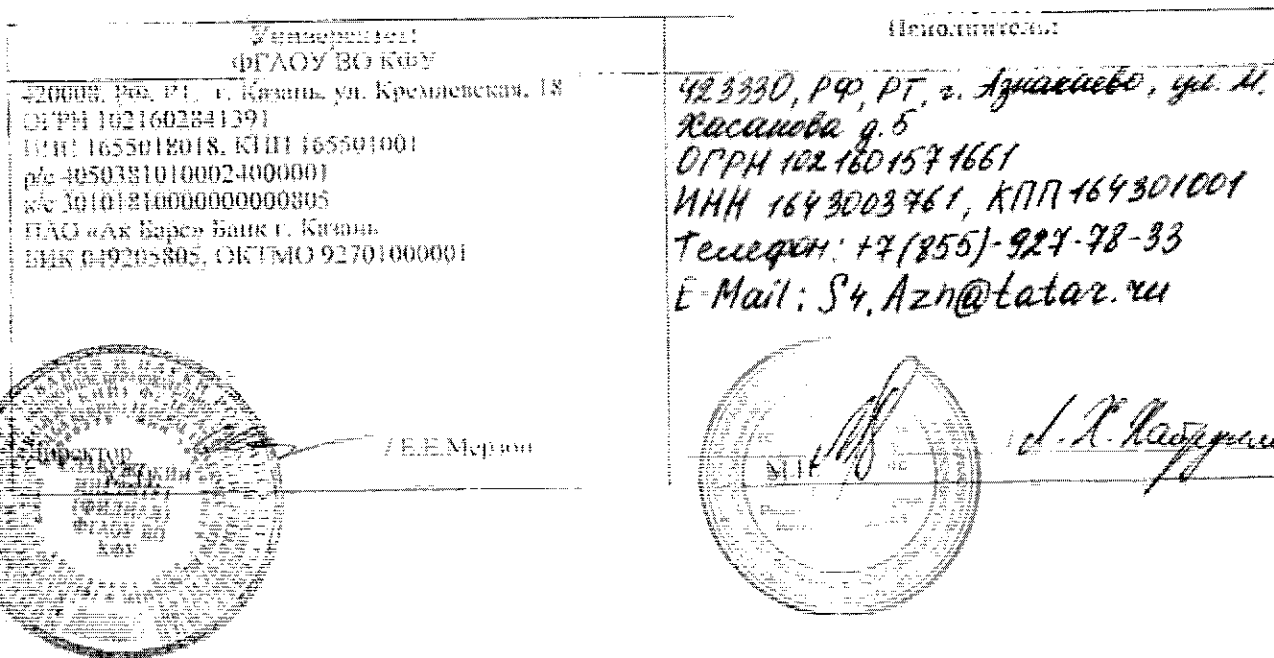 Университет:
ФГАОУ ВО КФУ
420008, РФ, РТ, г. Казань, ул. Кремлевская, 18
ОГРН 1021602841391
ИНН 1655018018, КПП 165501001
р/с 40503810100024000001
к/с 30101810000000000805
ПАО «Ак Барс» Банк г. Казань
БИК 049205805, ОКТМО 92701000001
Директор
/ Е.Е.Мерзон
Исполнитель:
423330, РФ, РТ, г. Азнакаево, ул. М.
Хасанова д. 5
ОГРН 1021601571661
ИНН 1643003761, КПП 164301001
Телефон: +7(855)-927-78-33
E-Mail: S4.Azn@tatar.ru
М.П.